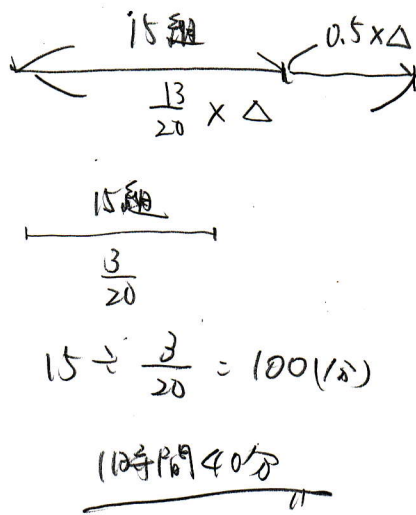 15組 0.5×△
13/20 × △
15組
3/20
15 ÷ 3/20 = 100(分)
1時間40分